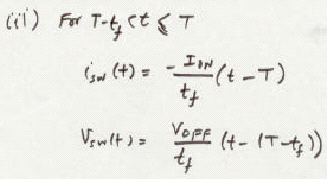 (ii) For T-t_f < t ⩽ T
i_sw (t) = -I_ON/t_f (t - T)
V_sw(t) = V_OFF/t_f (t - (T-t_f))